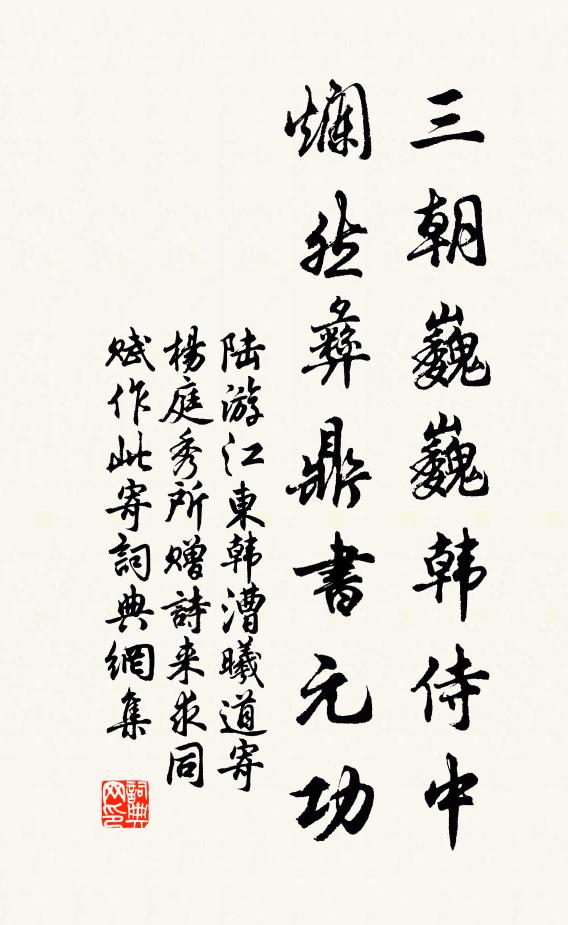 三朝巍巍韩侍中
爛然彝鼎書元功
陆游江東韩漕曦道寄
楊庭秀所赠詩来求同
赋作此寄詞典網集
詞典
网印